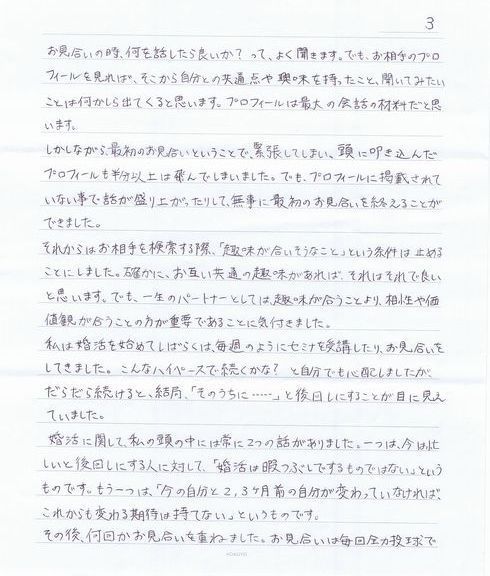 3
お見合いの時、何を話したら良いか？って、よく聞きます。でも、お相手のプロ
フィールを見れば、そこから自分との共通点や興味を持ったこと、聞いてみたい
ことは何かしら出てくると思います。プロフィールは最大の会話の材料だと思
います。
しかしながら、最初のお見合いということで、緊張してしまい、頭に叩き込んだ
プロフィールも半分以上は飛んでしまいました。でも、プロフィールに掲載されて
いない事で話が盛り上がったりして、無事に最初のお見合いを終えることが
できました。
それからはお相手を検索する際、「趣味が合いそうなこと」という条件は止める
ことにしました。確かに、お互い共通の趣味があれば、それはそれで良い
と思います。でも、一生のパートナーとしては、趣味が合うことより、相性や価
値観が合うことの方が重要であることに気付きました。
私は婚活を始めてしばらくは、毎週のようにセミナを受講したり、お見合いを
してきました。こんなハイペースで続くかな？と自分でも心配しましたが、
だらだら続けると、結局、「そのうちに……」と後回しにすることが目に見え
ていました。
婚活に関して、私の頭の中には常に2つの話がありました。一つは、今は忙
しいと後回しにする人に対して、「婚活は暇つぶしでするものではない」という
ものです。もう一つは、「今の自分と2,3ヶ月前の自分が変わっていなければ、
これからも変わる期待は持てない」というものです。
その後、何回かお見合いを重ねました。お見合いは毎回全力投球で
KOKUYO